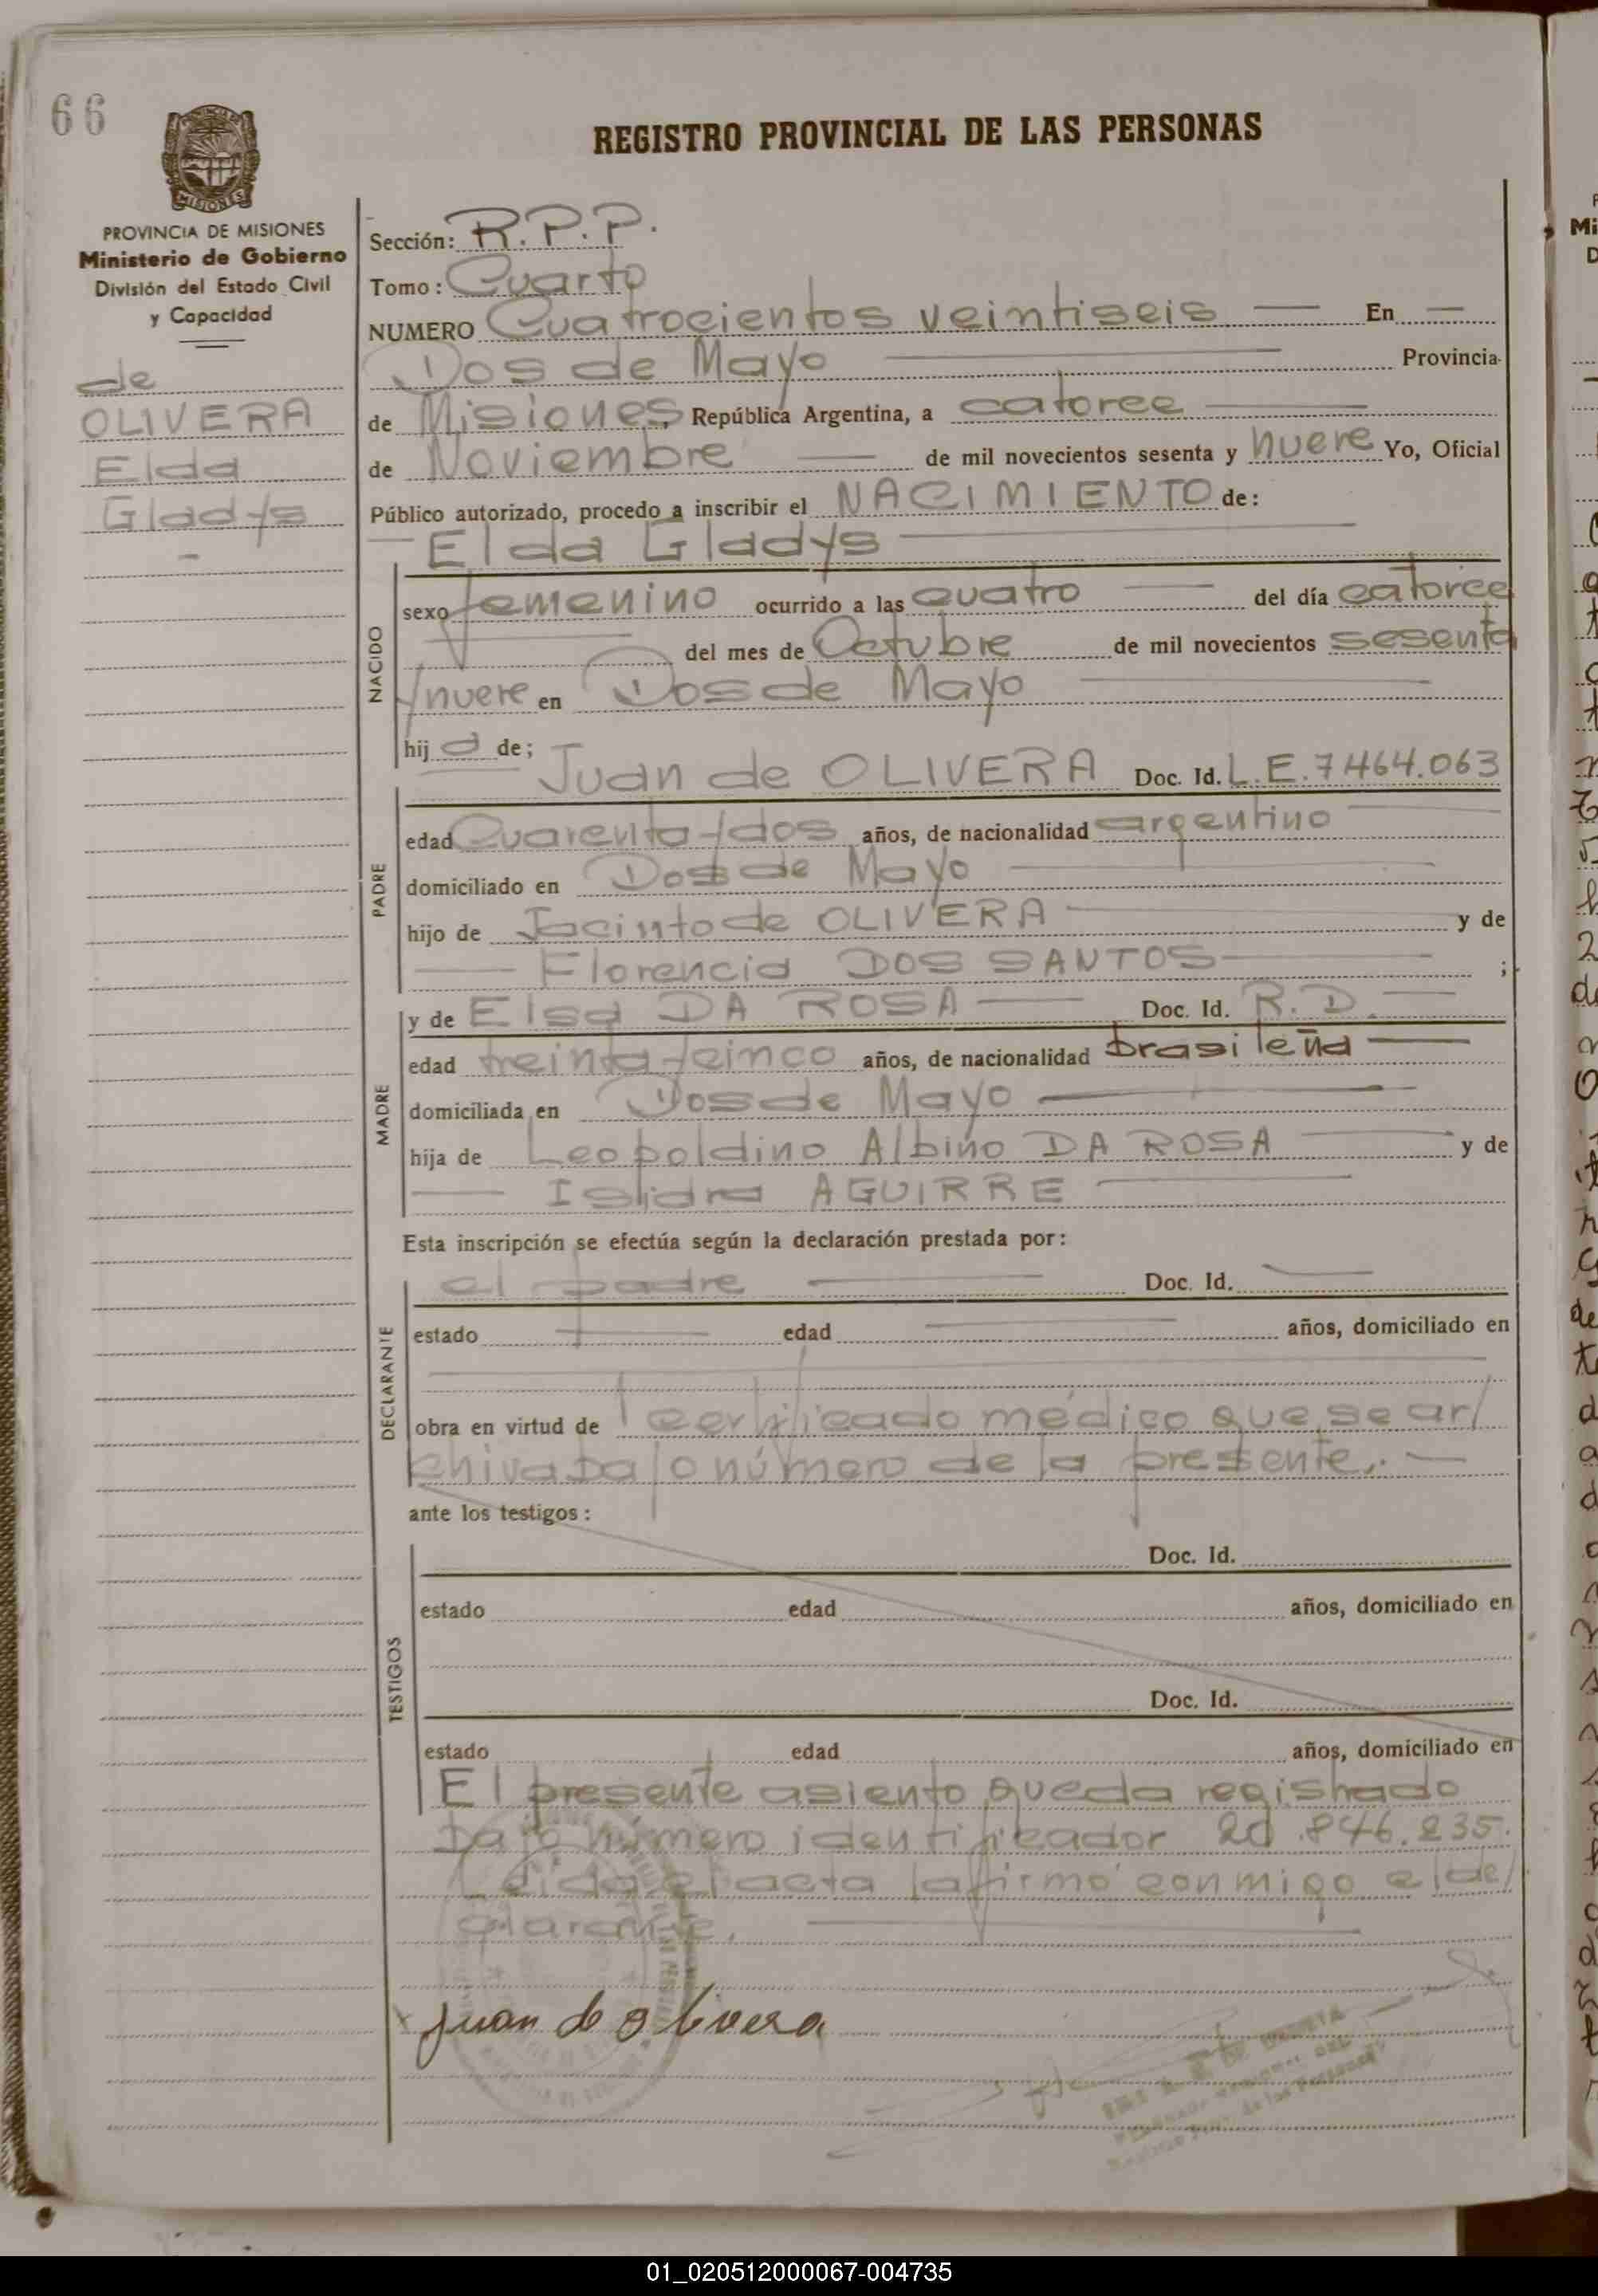 66
REGISTRO PROVINCIAL DE LAS PERSONAS
MISIONES
PROVINCIA DE MISIONES
Ministerio de Gobierno
División del Estado Civil
y Capacidad
de
OLIVERA
Elda
Gladys
Sección: R.P.P.
Tomo: Cuarto
NUMERO Cuatrocientos veintiseis — En —
Dos de Mayo — Provincia
de Misiones, República Argentina, a catorce —
de Noviembre — de mil novecientos sesenta y nueve Yo, Oficial
Público autorizado, procedo a inscribir el NACIMIENTO de:
— Elda Gladys —
NACIDO
sexo femenino ocurrido a las cuatro — del día catorce
— del mes de Octubre de mil novecientos sesenta
y nueve en Dos de Mayo —
hija de;
Juan de OLIVERA Doc. Id. L.E. 7464.063
PADRE
edad Cuarenta y dos años, de nacionalidad argentino —
domiciliado en Dos de Mayo —
hijo de Jacinto de OLIVERA — y de
— Florencia DOS SANTOS — ;
MADRE
y de Elsa DA ROSA — Doc. Id. R.D. —
edad treinta y cinco años, de nacionalidad brasileña —
domiciliada en Dos de Mayo —
hija de Leopoldino Albino DA ROSA — y de
— Isidra AGUIRRE —
Esta inscripción se efectúa según la declaración prestada por:
DECLARANTE
el padre — Doc. Id. —
estado — edad — años, domiciliado en
obra en virtud de certificado médico que se ar/
chiva bajo número de la presente. —
ante los testigos:
TESTIGOS
Doc. Id.
estado edad años, domiciliado en
Doc. Id.
estado edad años, domiciliado en
El presente asiento queda registrado
bajo número identificador 20.846.235.
Leida el acta la firmó conmigo el de/
clarante. —
x Juan de olivera
01_020512000067-004735